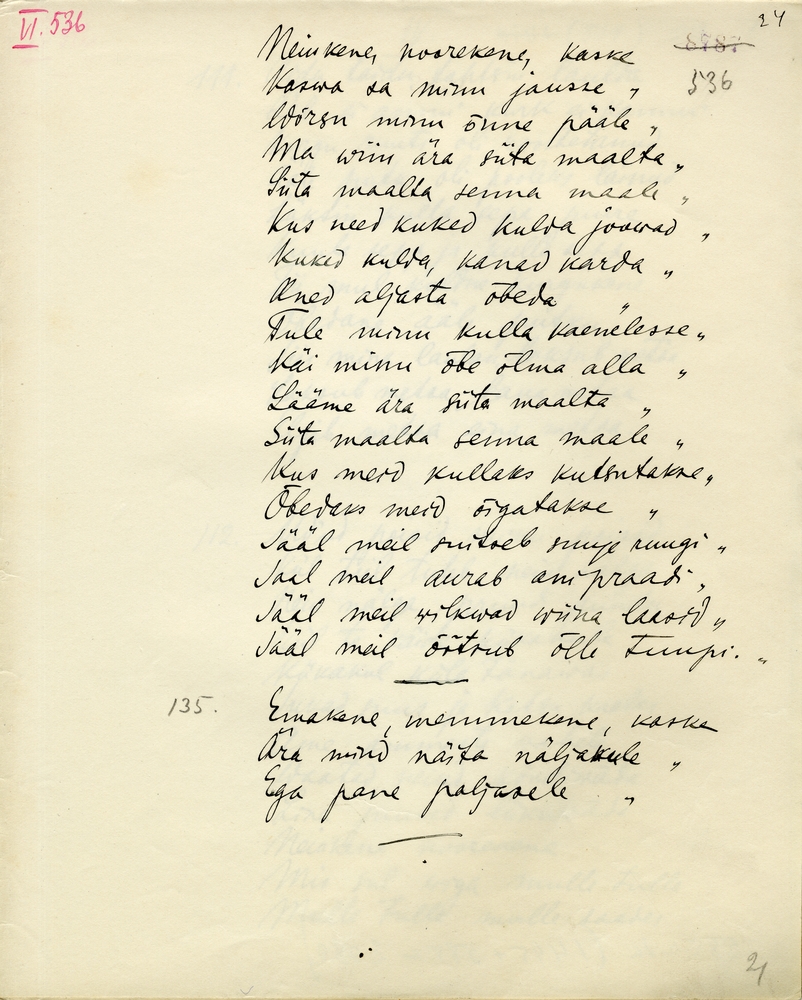 VI. 536
24
8787
536
Neiukene, noorekene, kaske
Kaswa sa minu jausse „
Wõrsu minu õnne pääle „
Ma wiin ära siita maalta „
Siita maalta senna maale „
Kus need kuked kulda joowad „
Kuked kulda, kanad karda „
Aned aljasta õbeda „
Tule minu kulla kaenelesse „
Käi minu õbe õlma alla „
Lääme ära siita maalta „
Siita maalta senna maale „
Kus meid kullaks kutsutakse „
Õbedaks meid õigatakse „
Sääl meil suitseb suuje ruugi „
Saal meil aurab anipraadi „
Sääl meil wilkwad wiina laasid „
Sääl meil õõtsub õlle tuupi. „
135.
Emakene, memmekene, kaske
Ära mind näita näljakule „
Ega pane paljasele „
21